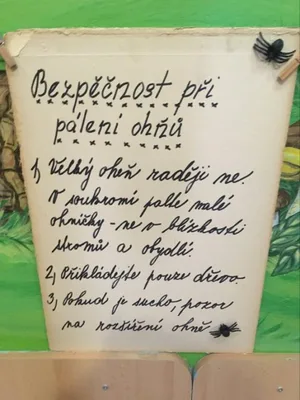 Bezpěčnost při
pálení ohňů
1, Velký oheň raději ne.
V soukromí palte malé
ohničky - ne v blízkosti
stromů a obydlí.
2, Přikládejte pouze dřevo.
3, Pokud je sucho, pozor
na rozšíření ohně